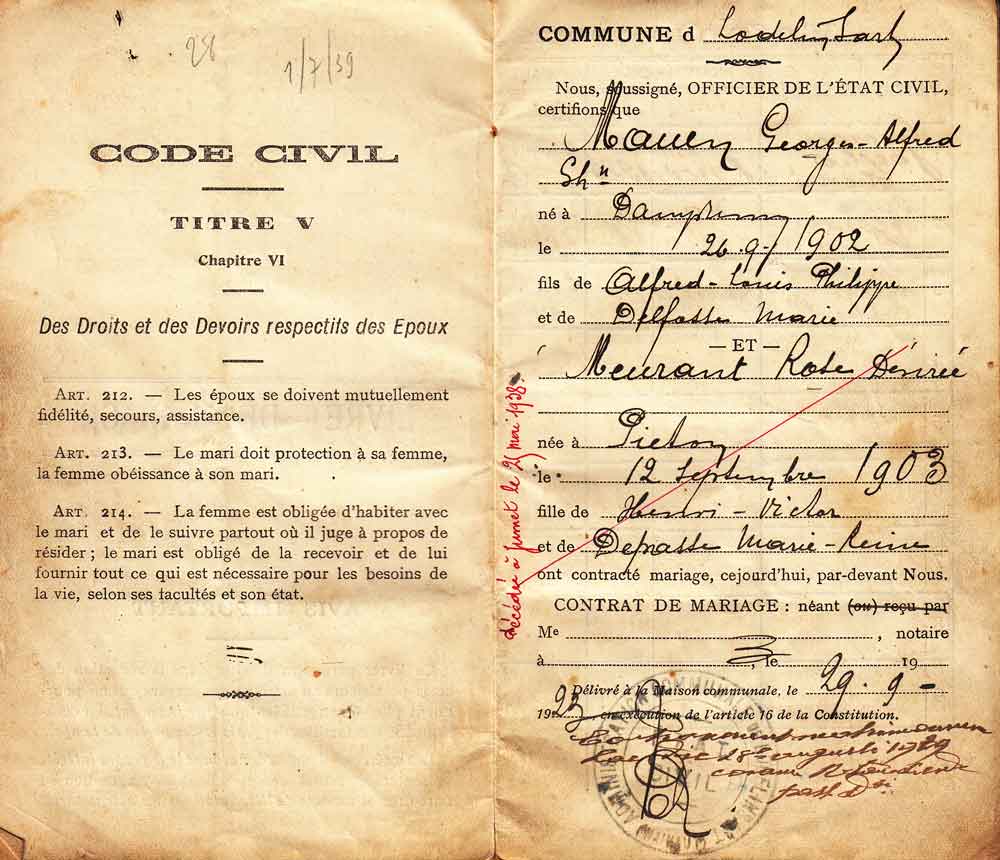 28
1/7/39
CODE CIVIL
TITRE V
Chapitre VI
Des Droits et des Devoirs respectifs des Epoux
ART. 212. — Les époux se doivent mutuellement
fidélité, secours, assistance.
ART. 213. — Le mari doit protection à sa femme,
la femme obéissance à son mari.
ART. 214. — La femme est obligée d'habiter avec
le mari et de le suivre partout où il juge à propos de
résider ; le mari est obligé de la recevoir et de lui
fournir tout ce qui est nécessaire pour les besoins de
la vie, selon ses facultés et son état.
COMMUNE d Lodelinsart
Nous, soussigné, OFFICIER DE L'ÉTAT CIVIL,
certifions que
Georges-Alfred
né à Dampremy
le 26.9-1902
fils de Alfred-Louis Philippe
et de Delfosse Marie
— ET —
Meurant Rose Désirée
née à Pieton
le 12 Septembre 1903
fille de Henri-Victor
et de Deprasse Marie-Reine
ont contracté mariage, cejourd'hui, par-devant Nous.
CONTRAT DE MARIAGE : néant (ou) reçu par
Me , notaire
à , le 19
Délivré à la Maison communale, le 29.9-
1923 en exécution de l'article 16 de la Constitution.
décédée à Jumet le 25 mai 1938.